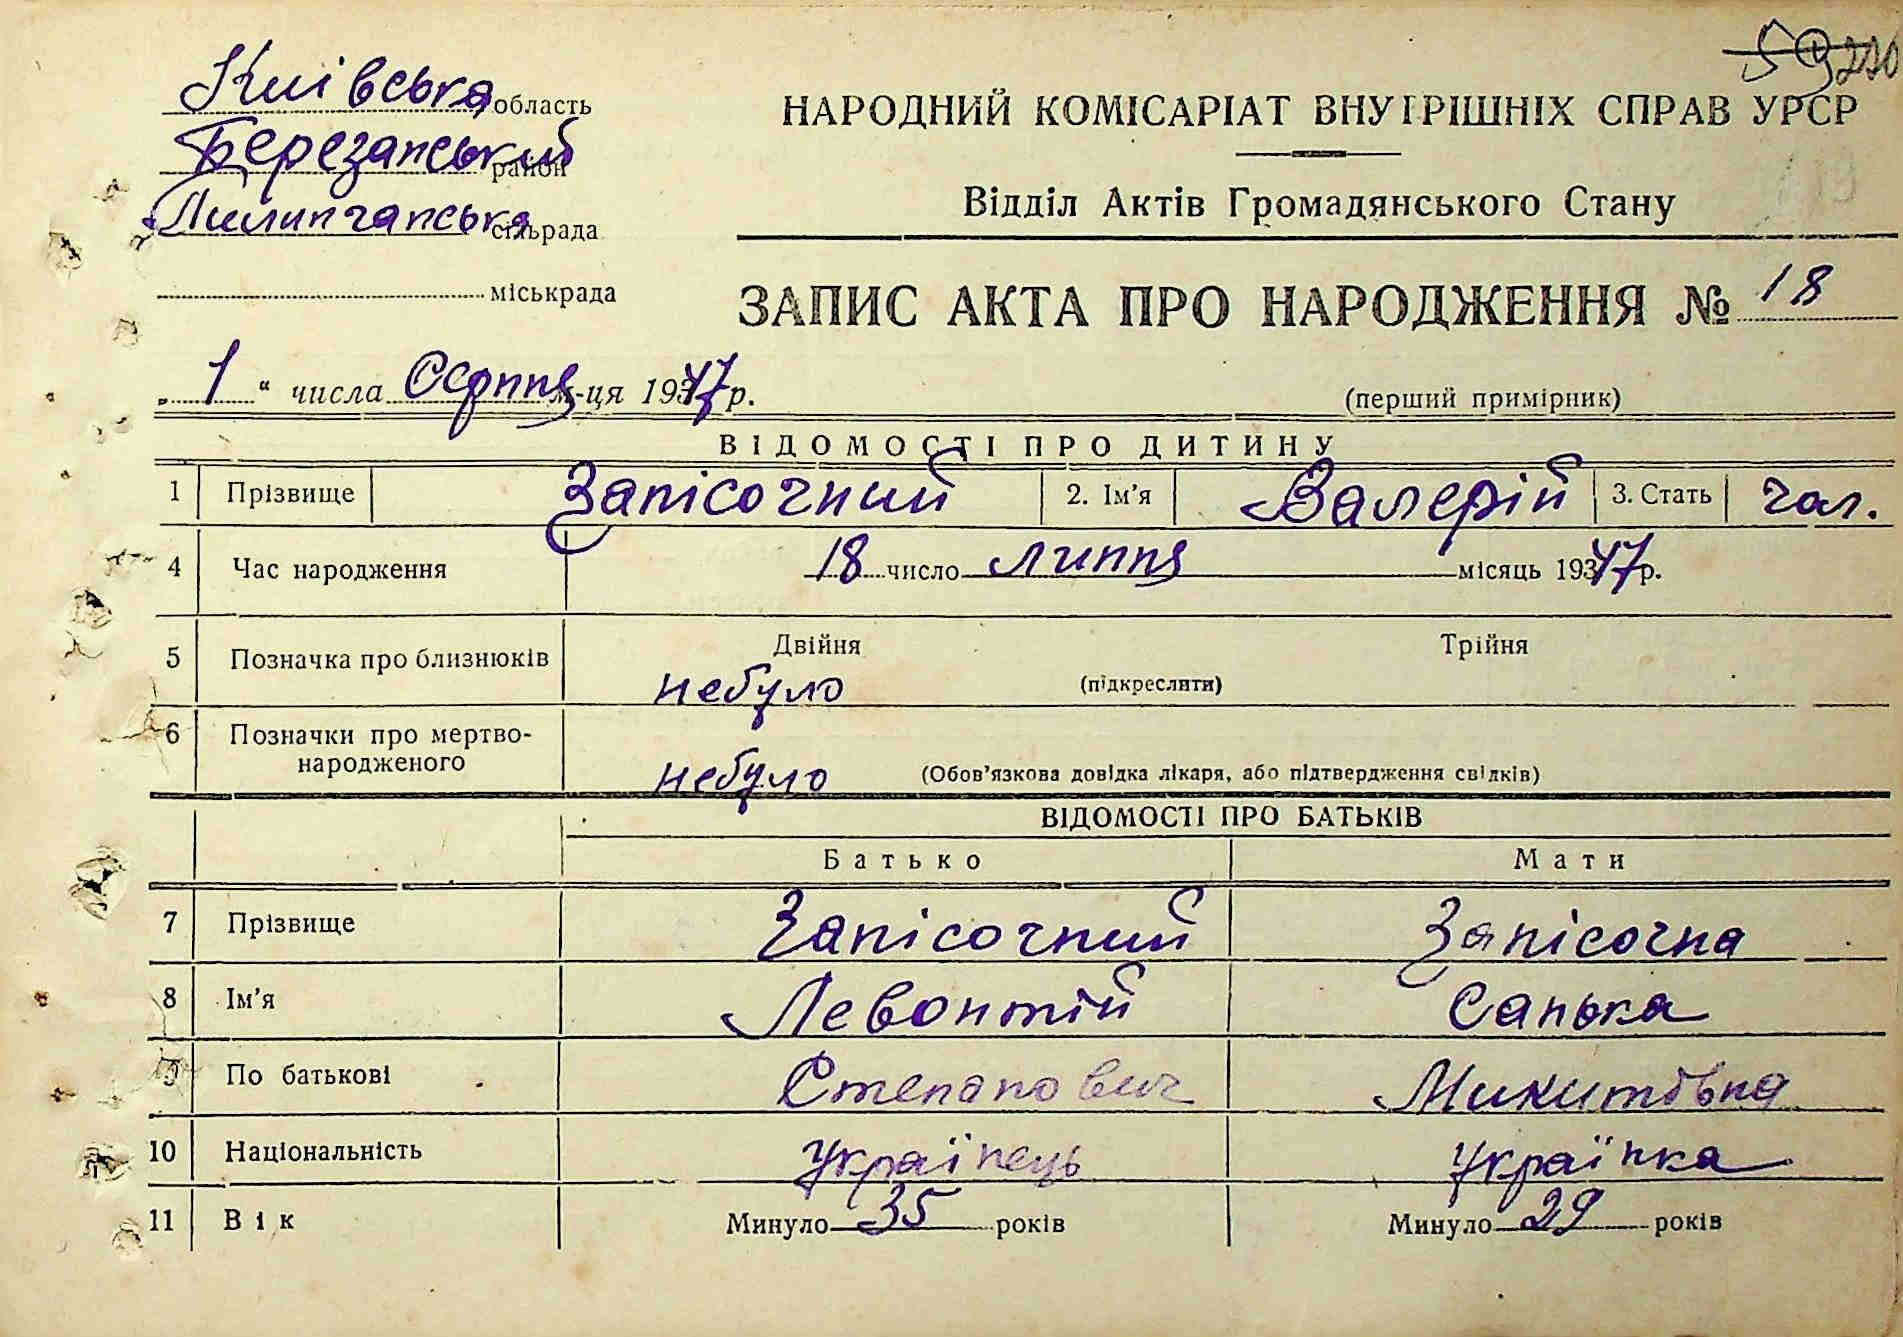 220
Київська область
НАРОДНИЙ КОМІСАРІАТ ВНУТРІШНІХ СПРАВ УРСР
Березанський район
Відділ Актів Громадянського Стану
Пилипчанська сільрада
міськрада
ЗАПИС АКТА ПРО НАРОДЖЕННЯ № 18
„ 1 “ числа Серпня м-ця 1947 р.
(перший примірник)
ВІДОМОСТІ ПРО ДИТИНУ
1 Прізвище Запісочний 2. Ім'я Валерій 3. Стать чол.
4 Час народження 18 число липня місяць 1947 р.
5 Позначка про близнюків Двійня Трійня
небуло (підкреслити)
6 Позначки про мертво-
народженого небуло (Обов'язкова довідка лікаря, або підтвердження свідків)
ВІДОМОСТІ ПРО БАТЬКІВ
Батько Мати
7 Прізвище Запісочний Запісочна
8 Ім'я Левонтій Санька
9 По батькові Степанович Микитовна
10 Національність Українець Українка
11 Вік Минуло 35 років Минуло 29 років